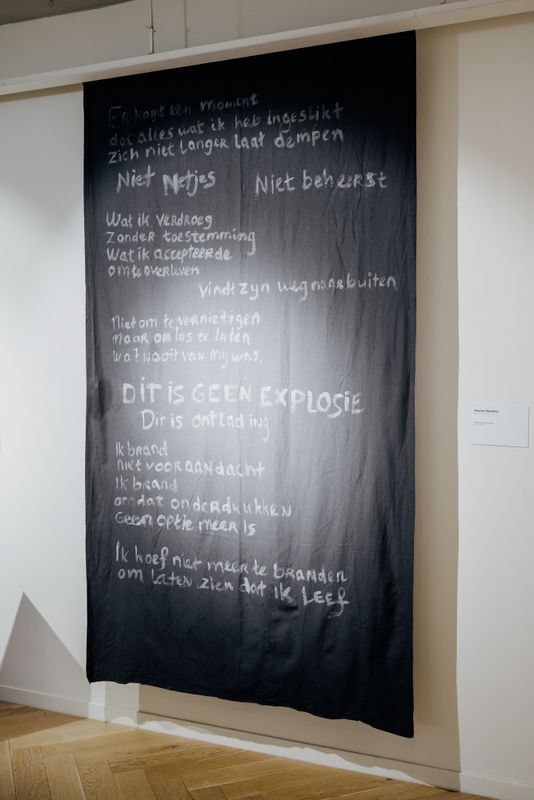 Er komt een moment
dat alles wat ik heb ingeslikt
zich niet langer laat dempen
Niet Netjes Niet beheerst
Wat ik verdroeg
Zonder toestemming
Wat ik accepteerde
om te overleven
vindt zyn weg naar buiten
Niet om te vernietigen
maar om los te laten
wat nooit van my was.
DIT IS GEEN EXPLOSIE
Dit is ontlading
Ik brand
niet voor aandacht
Ik brand
omdat onderdrukken
Geen optie meer is
Ik hoef niet meer te branden
om laten zien dat ik LEEF